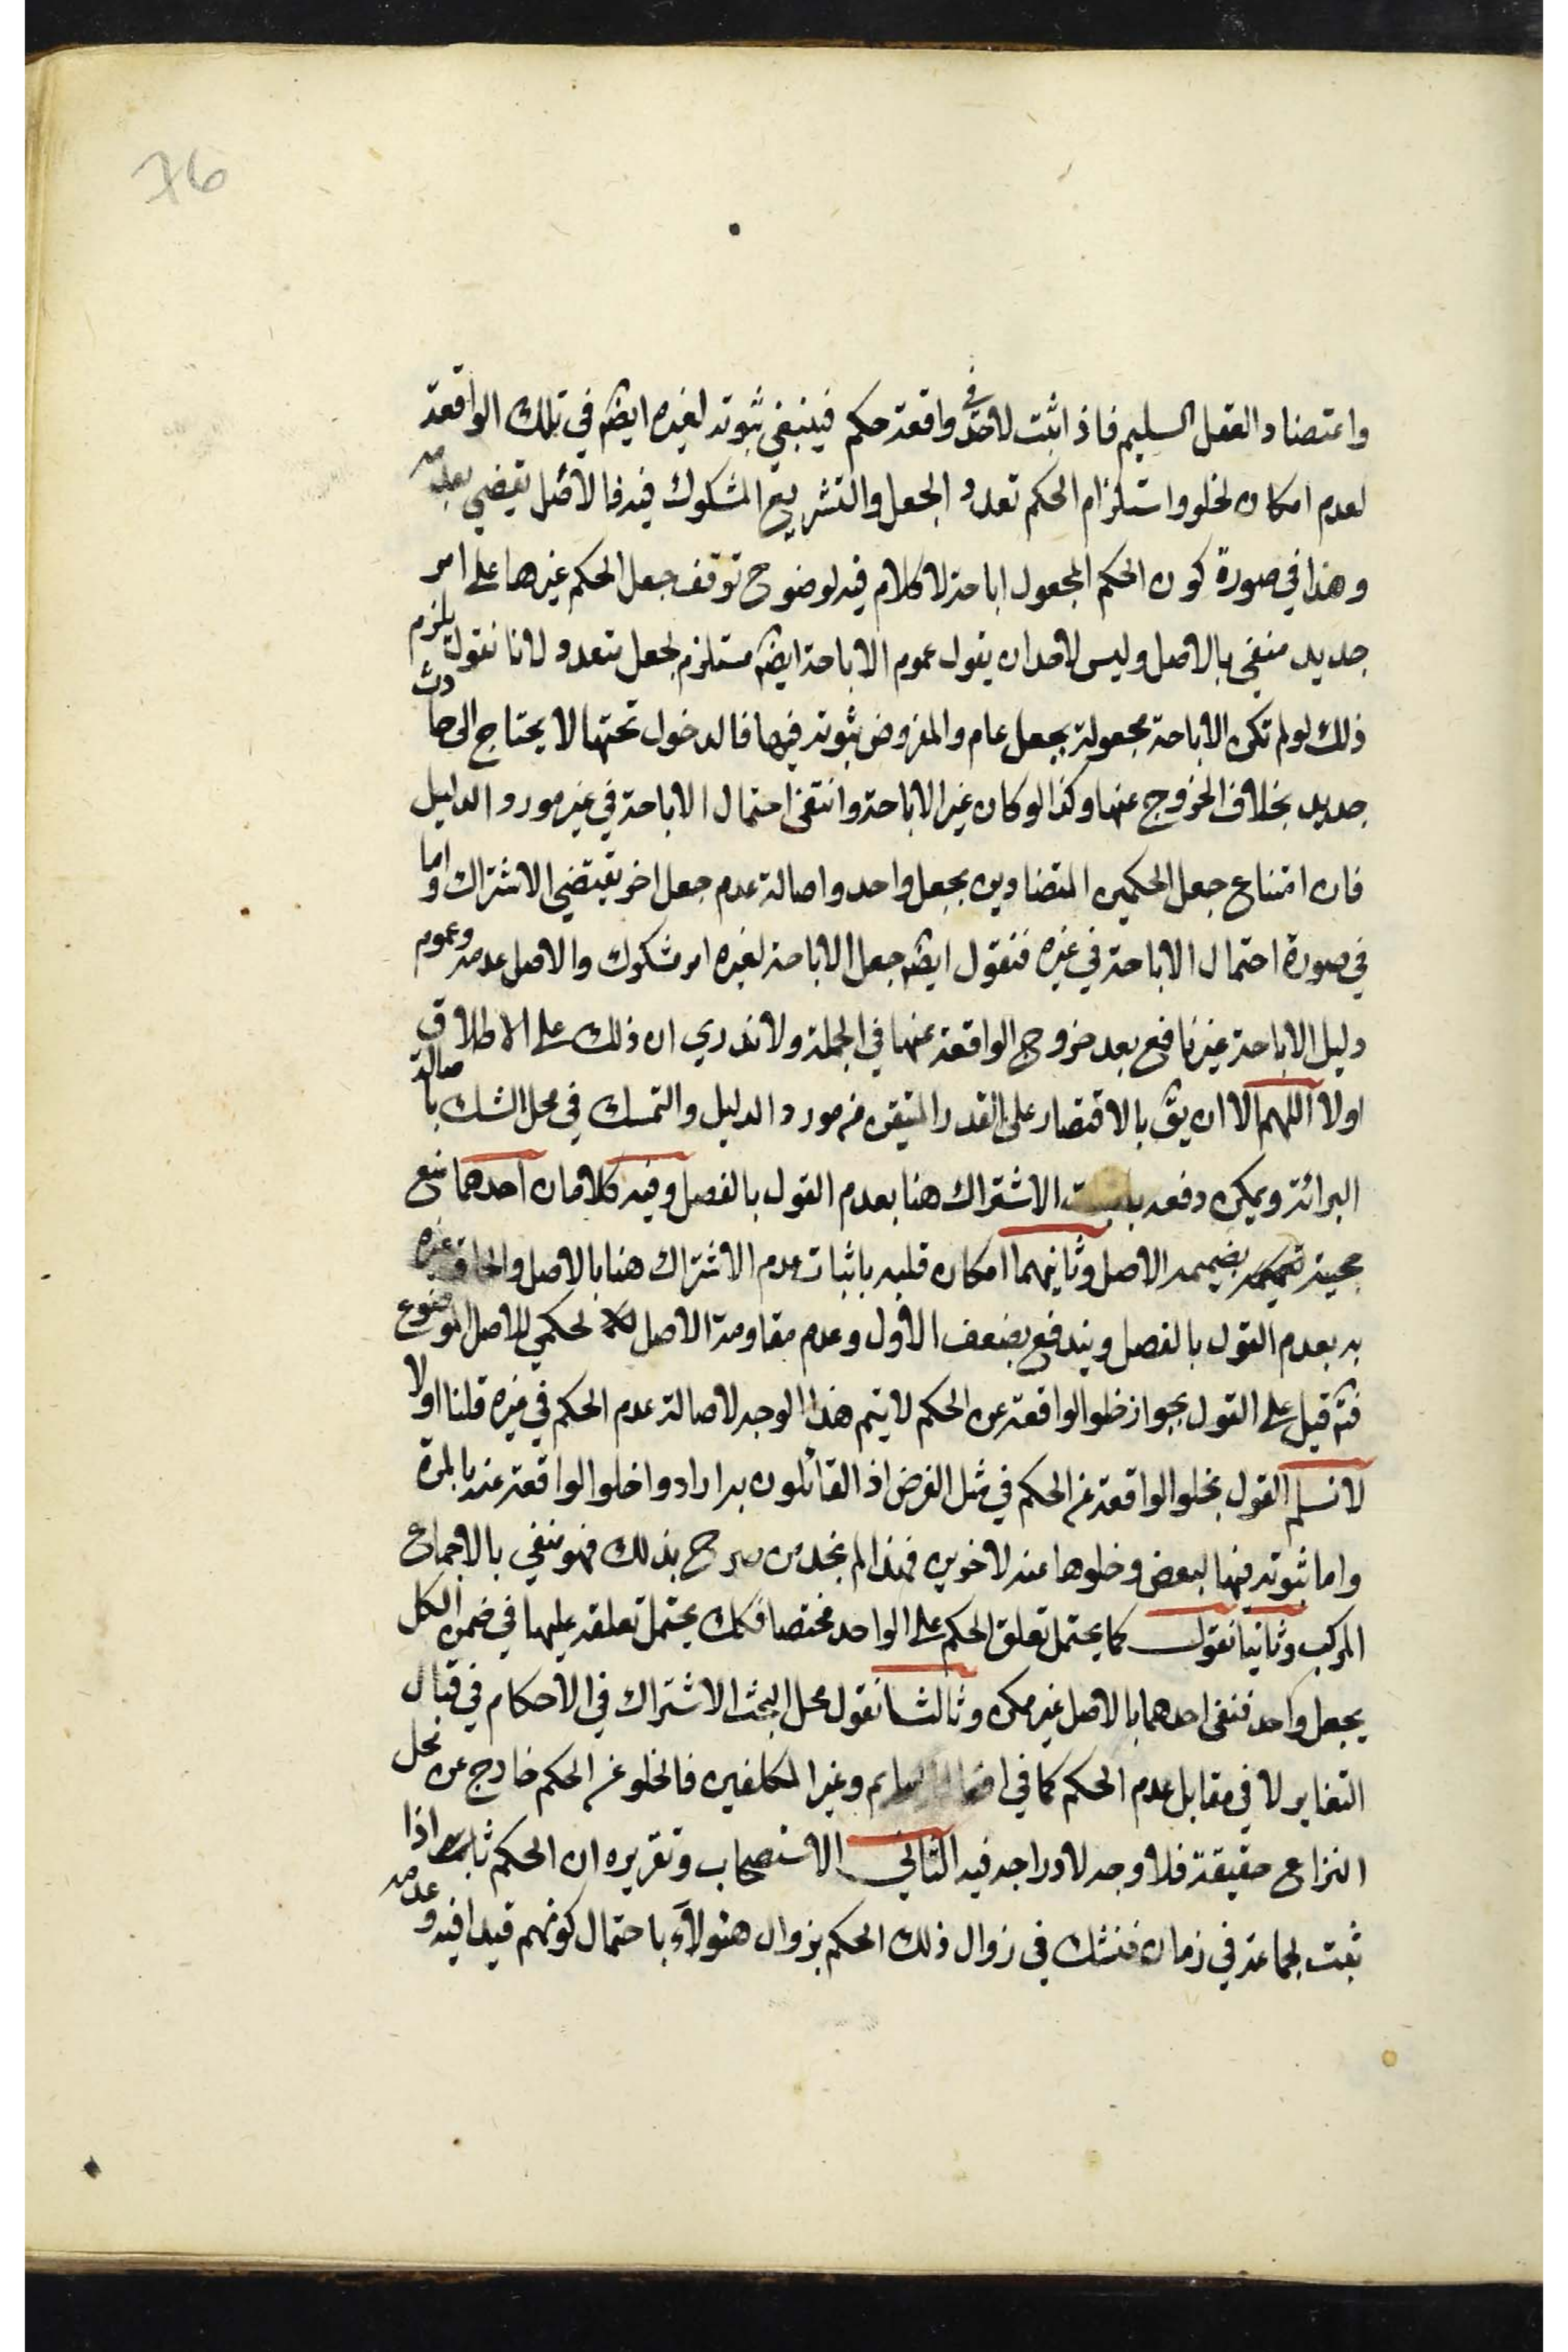 76
واعتضاد العقل السليم فاذا ثبت لاحد في واقعة حكم فينبغي ثبوته لغيره ايضا في تلك الواقعة
لعدم امكان لخلو واستلزام الحكم تعدد الجعل والتشريع المشكوك فيه فالاصل يقضي بعدمه
وهذا في صورة كون الحكم المجعول اباحة لا كلام فيه لوضوح توقف جعل الحكم غيرها على امر
جديد منفي بالاصل وليس لاحد ان يقول عموم الاباحة ايضا مستلزم لجعل متعدد لانا نقول يلزم
ذلك لو لم تكن الاباحة مجعولة بجعل عام والمفروض ثبوته فيها فالدخول تحتها لا يحتاج الى حادث
جديد بخلاف الخروج عنها وكذا لو كان غير الاباحة وانتفى احتمال الاباحة في غير مورد الدليل
فان امتناع جعل الحكمين المتضادين بجعل واحد واصالة عدم جعل اخر يقتضي الاشتراك واما
في صورة احتمال الاباحة في غيره فنقول ايضا جعل الاباحة لغيره امر مشكوك والاصل عدمه وعموم
دليل الاباحة غير نافع بعد خروج الواقعة عنها في الجملة ولا ندري ان ذلك على الاطلاق
اولا اللهم الا ان يق بالاقتصار على القدر المتيقن من مورد الدليل والتمسك في محل الشك باصالة
البرائة ويمكن دفعه الاشتراك هنا بعدم القول بالفصل وفيه كلامان احدهما منع
حجية بضميمة الاصل وثانيهما امكان قلبه باثبات عدم الاشتراك هنا بالاصل والحاق غيره
به بعدم القول بالفصل ويندفع بضعف الاول وعدم مقاومة الاصل لحكمي للاصل الموضوع
فت‍ه قيل على القول بجواز خلو الواقعة عن الحكم لا يتم هذا الوجه لاصالة عدم الحكم في غيره قلنا اولا
لا نسلم القول بخلو الواقعة عن الحكم في مثل الفرض اذ القائلون به ارادوا خلو الواقعة عنه بالمرة
واما ثبوته فيها لبعض وخلوها عنه لاخرين فهذا لم نجد من صرح بذلك فهو منفي بالاجماع
المركب وثانيا نقول كما يحتمل تعلق الحكم على الواحد مختصا فكك يحتمل تعلقه عليها في ضمن الكل
بجعل واحد فنفى احدهما بالاصل غير ممكن وثالثا نقول محل البحث الاشتراك في الاحكام في قبال
التغاير لا في مقابل عدم الحكم كما في افعال البهايم وغير المكلفين فالخلو عن الحكم خارج عن محل
النزاع حقيقة فلا وجه لادراجه فيه الثاني الاستصحاب وتقريره ان الحكم ثابت اذا
ثبت لجماعة في زمان فنشك في زوال ذلك الحكم بزوال هئولآء باحتمال كونهم قيدا فيه وعدمه